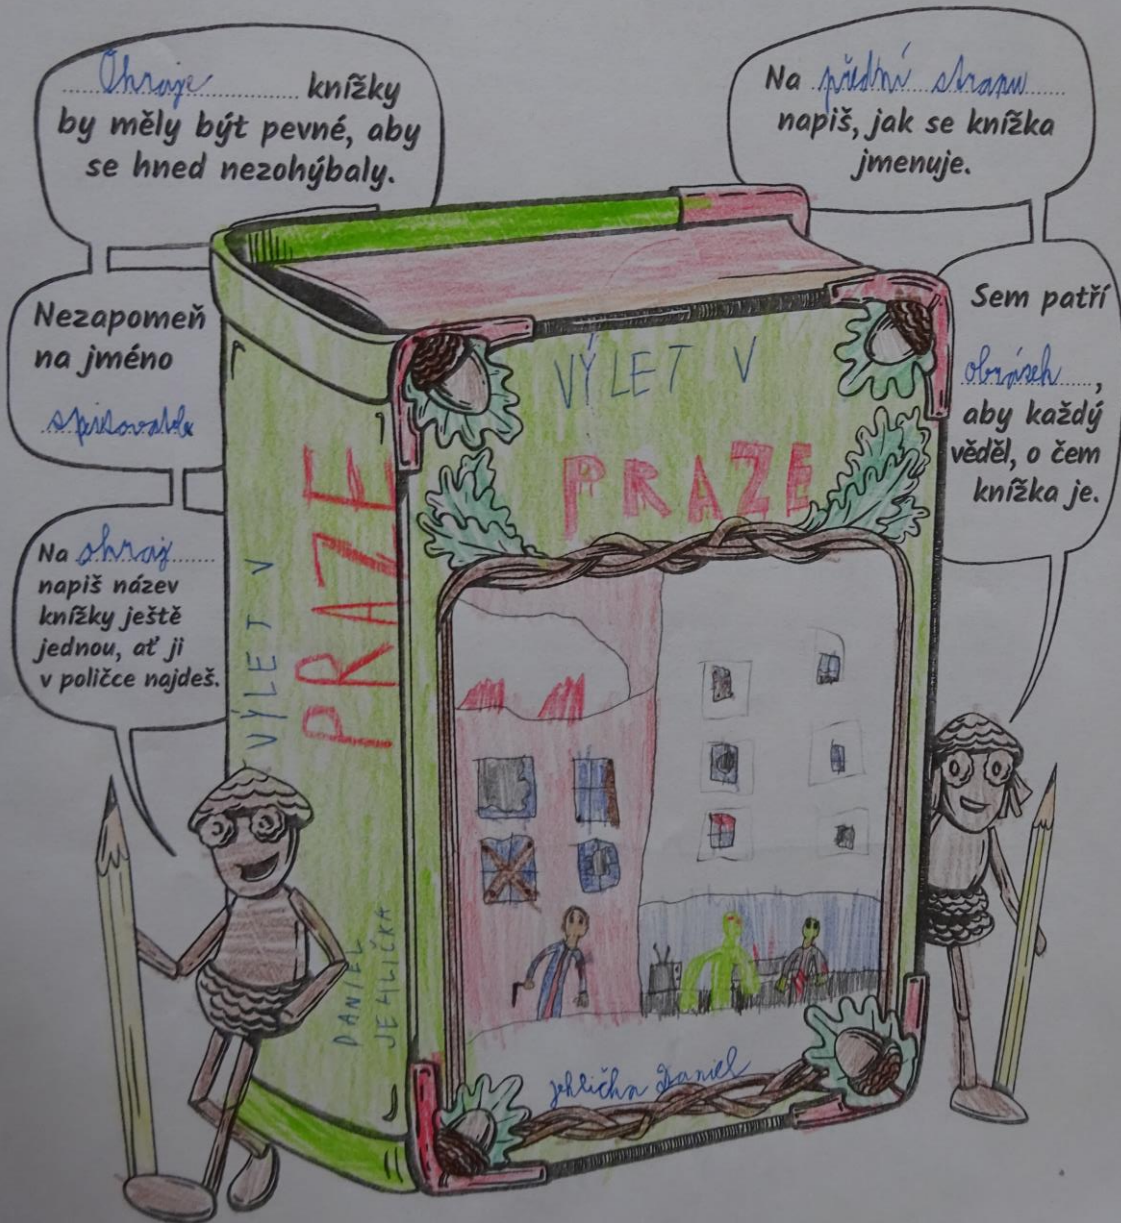 Okraje knížky
by měly být pevné, aby
se hned nezohýbaly.
Na přední stranu
napiš, jak se knížka
jmenuje.
Nezapomeň
na jméno
spisovatele
Sem patří
obrázek,
aby každý
věděl, o čem
knížka je.
Na okraj
napiš název
knížky ještě
jednou, ať ji
v poličce najdeš.
VÝLET V
PRAZE
VÝLET V
PRAZE
DANIEL
JEHLIČKA
jehlička Daniel